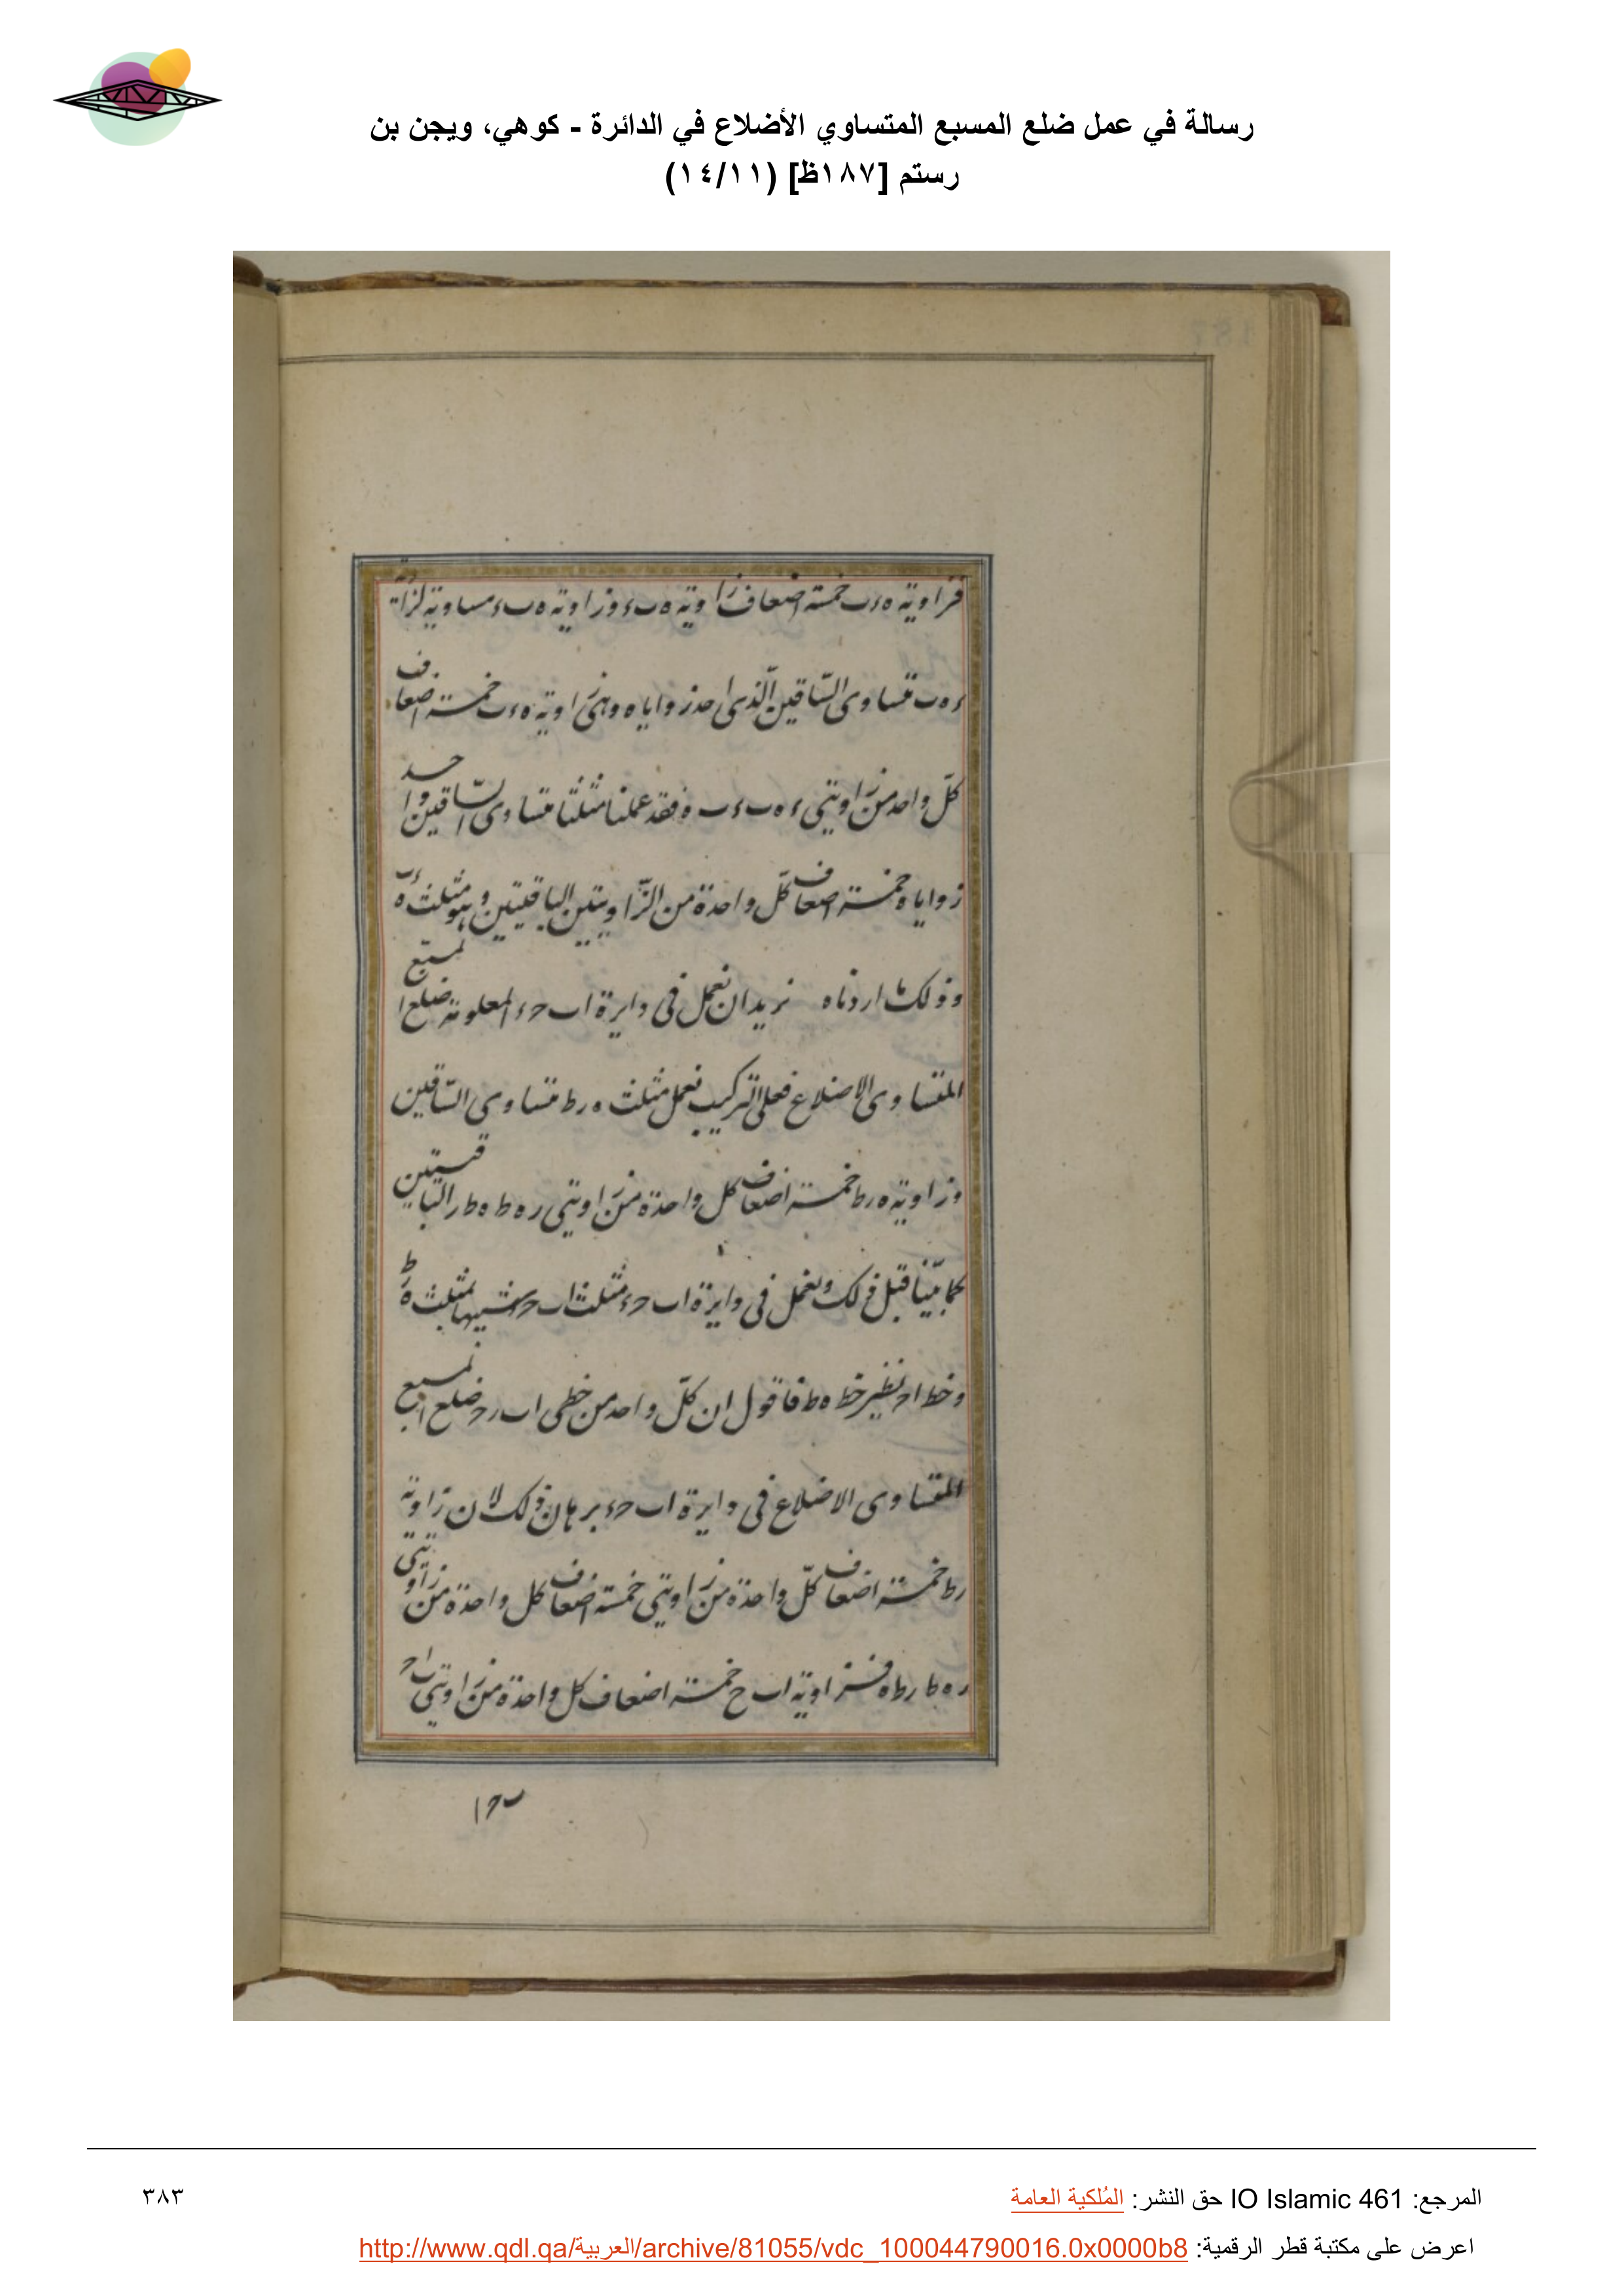 رسالة في عمل ضلع المسبع المتساوي الأضلاع في الدائرة - كوهي، ويجن بن
رستم [١٨٧ظ] (١٤/١١)
فزاوية ه ء ب خمسة اضعاف زاوية ه ب ء وزاوية ه ب ء مساوية لزاوية
ء ه ب متساوى الساقين الذى احد زواياه وهى زاوية ه ء ب خمسة اضعاف
كل واحد من زاويتى ء ه ب ء ب ه فقد عملنا مثلثا متساوى الساقين واحد
زواياه خمسة اضعاف كل واحدة من الزاويتين الباقيتين وهو مثلث ء ب ه
وذلك ما اردناه نريد ان نعمل فى دايرة ا ب ح ء المعلومة ضلع المسبع
المتساوى الاضلاع فعلى التركيب نعمل مثلث ه ر ط متساوى الساقين
وزاوية ه ر ط خمسة اضعاف كل واحدة من زاويتى ر ه ط ه ط ر الباقيتين
كما بينا قبل ذلك ونعمل فى دايرة ا ب ح ء مثلث ا ب ح شبيها بمثلث ه ر ط
وخط ا ح نظير خط ه ط فاقول ان كل واحد من خطى ا ب ب ح ضلع المسبع
المتساوى الاضلاع فى دايرة ا ب ح ء برهان ذلك لان زاوية
ر ط خمسة اضعاف كل واحدة من زاويتى خمسة اضعاف كل واحدة من زاويتى
ر ه ط ر ط ه فزاوية ا ب ح خمسة اضعاف كل واحدة من زاويتى ب ا ح
ب ح ا
المرجع: IO Islamic 461 حق النشر: المُلكية العامة
٣٨٣
اعرض على مكتبة قطر الرقمية: http://www.qdl.qa/العربية/archive/81055/vdc_100044790016.0x0000b8